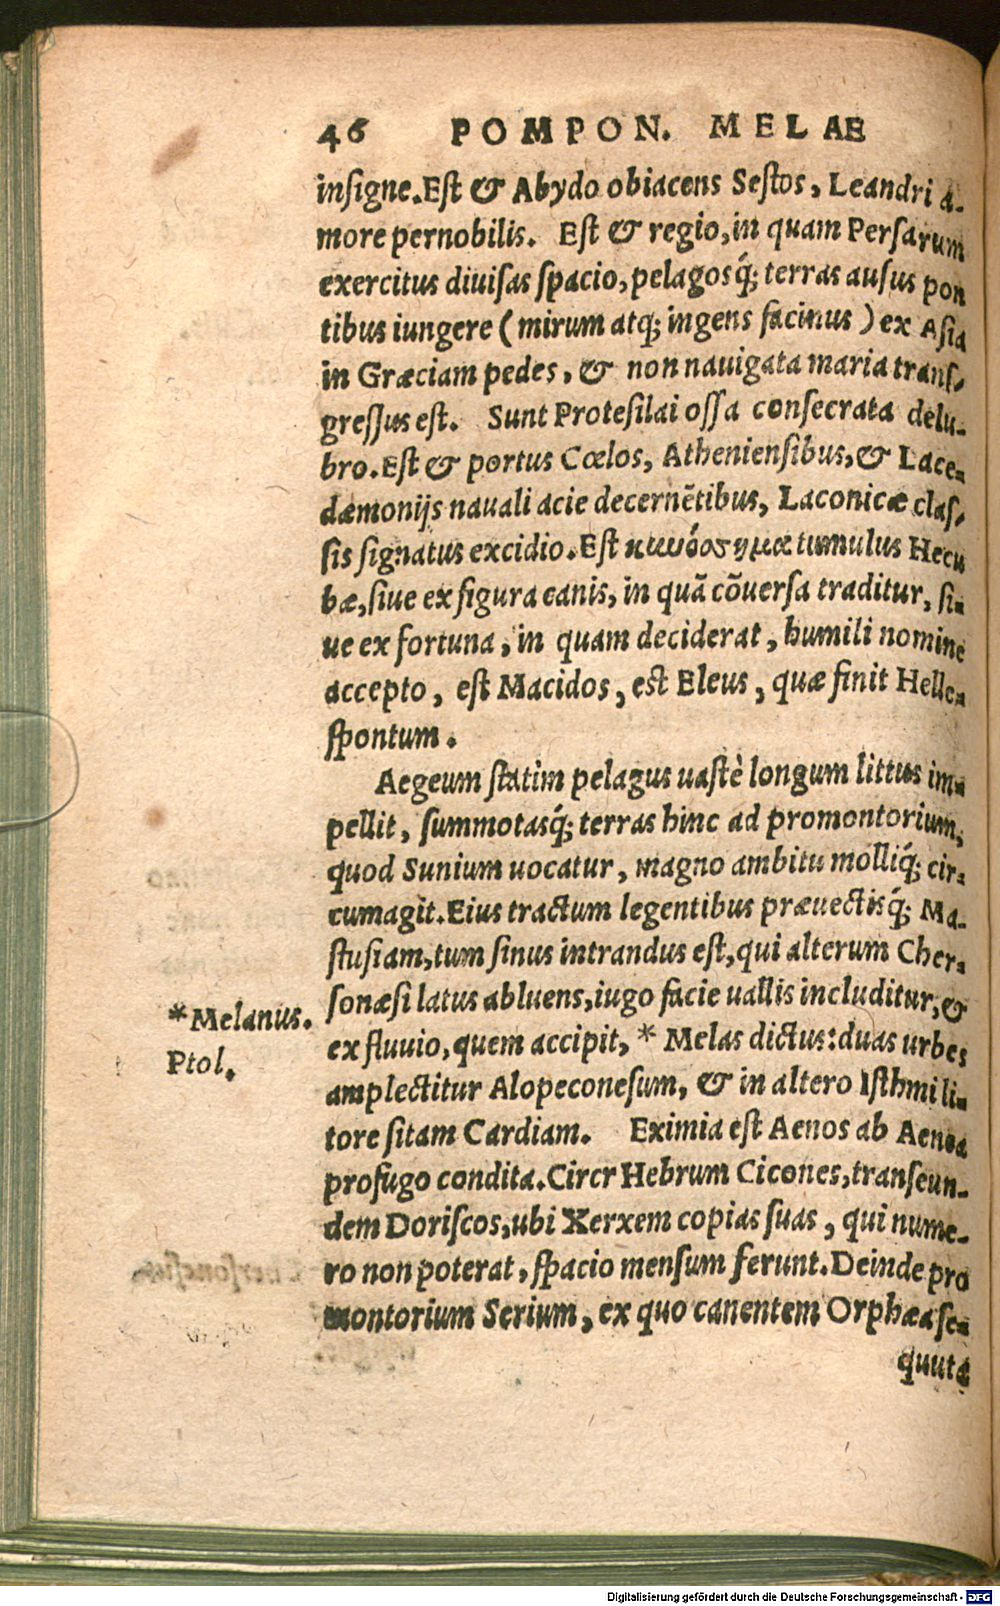 46 POMPON. MELAE
insigne. Est & Abydo obiacens Sestos, Leandri a-
more pernobilis. Est & regio, in quam Persarum
exercitus diuisas spacio, pelagosq́; terras ausus pon
tibus iungere (mirum atq; ingens facinus) ex Asia
in Græciam pedes, & non nauigata maria trans-
gressus est. Sunt Protesilai ossa consecrata delu-
bro. Est & portus Cœlos, Atheniensibus, & Lace-
dæmonijs nauali acie decernẽtibus, Laconicæ clas-
sis signatus excidio. Est κιωόσημα tumulus Hecu
bæ, siue ex figura canis, in quã cõuersa traditur, si-
ue ex fortuna, in quam deciderat, humili nomine
accepto, est Macidos, est Eleus, quæ finit Helle-
spontum.
Aegeum statim pelagus uastè longum littus im-
pellit, summotasq́; terras hinc ad promontorium,
quod Sunium uocatur, magno ambitu molliq́; cir-
cumagit. Eius tractum legentibus præuectisq́; Ma-
stusiam, tum sinus intrandus est, qui alterum Cher-
sonæsi latus abluens, iugo facie uallis includitur, &
ex fluuio, quem accipit, * Melas dictus: duas urbes
amplectitur Alopeconesum, & in altero Isthmi li-
tore sitam Cardiam. Eximia est Aenos ab Aenea
profugo condita. Circr Hebrum Cicones, transeun-
dem Doriscos, ubi Xerxem copias suas, qui nume-
ro non poterat, spacio mensum ferunt. Deinde pro
montorium Serium, ex quo canentem Orphæa se-
quuta
*Melanus.
Ptol.
Digitalisierung gefördert durch die Deutsche Forschungsgemeinschaft - DFG